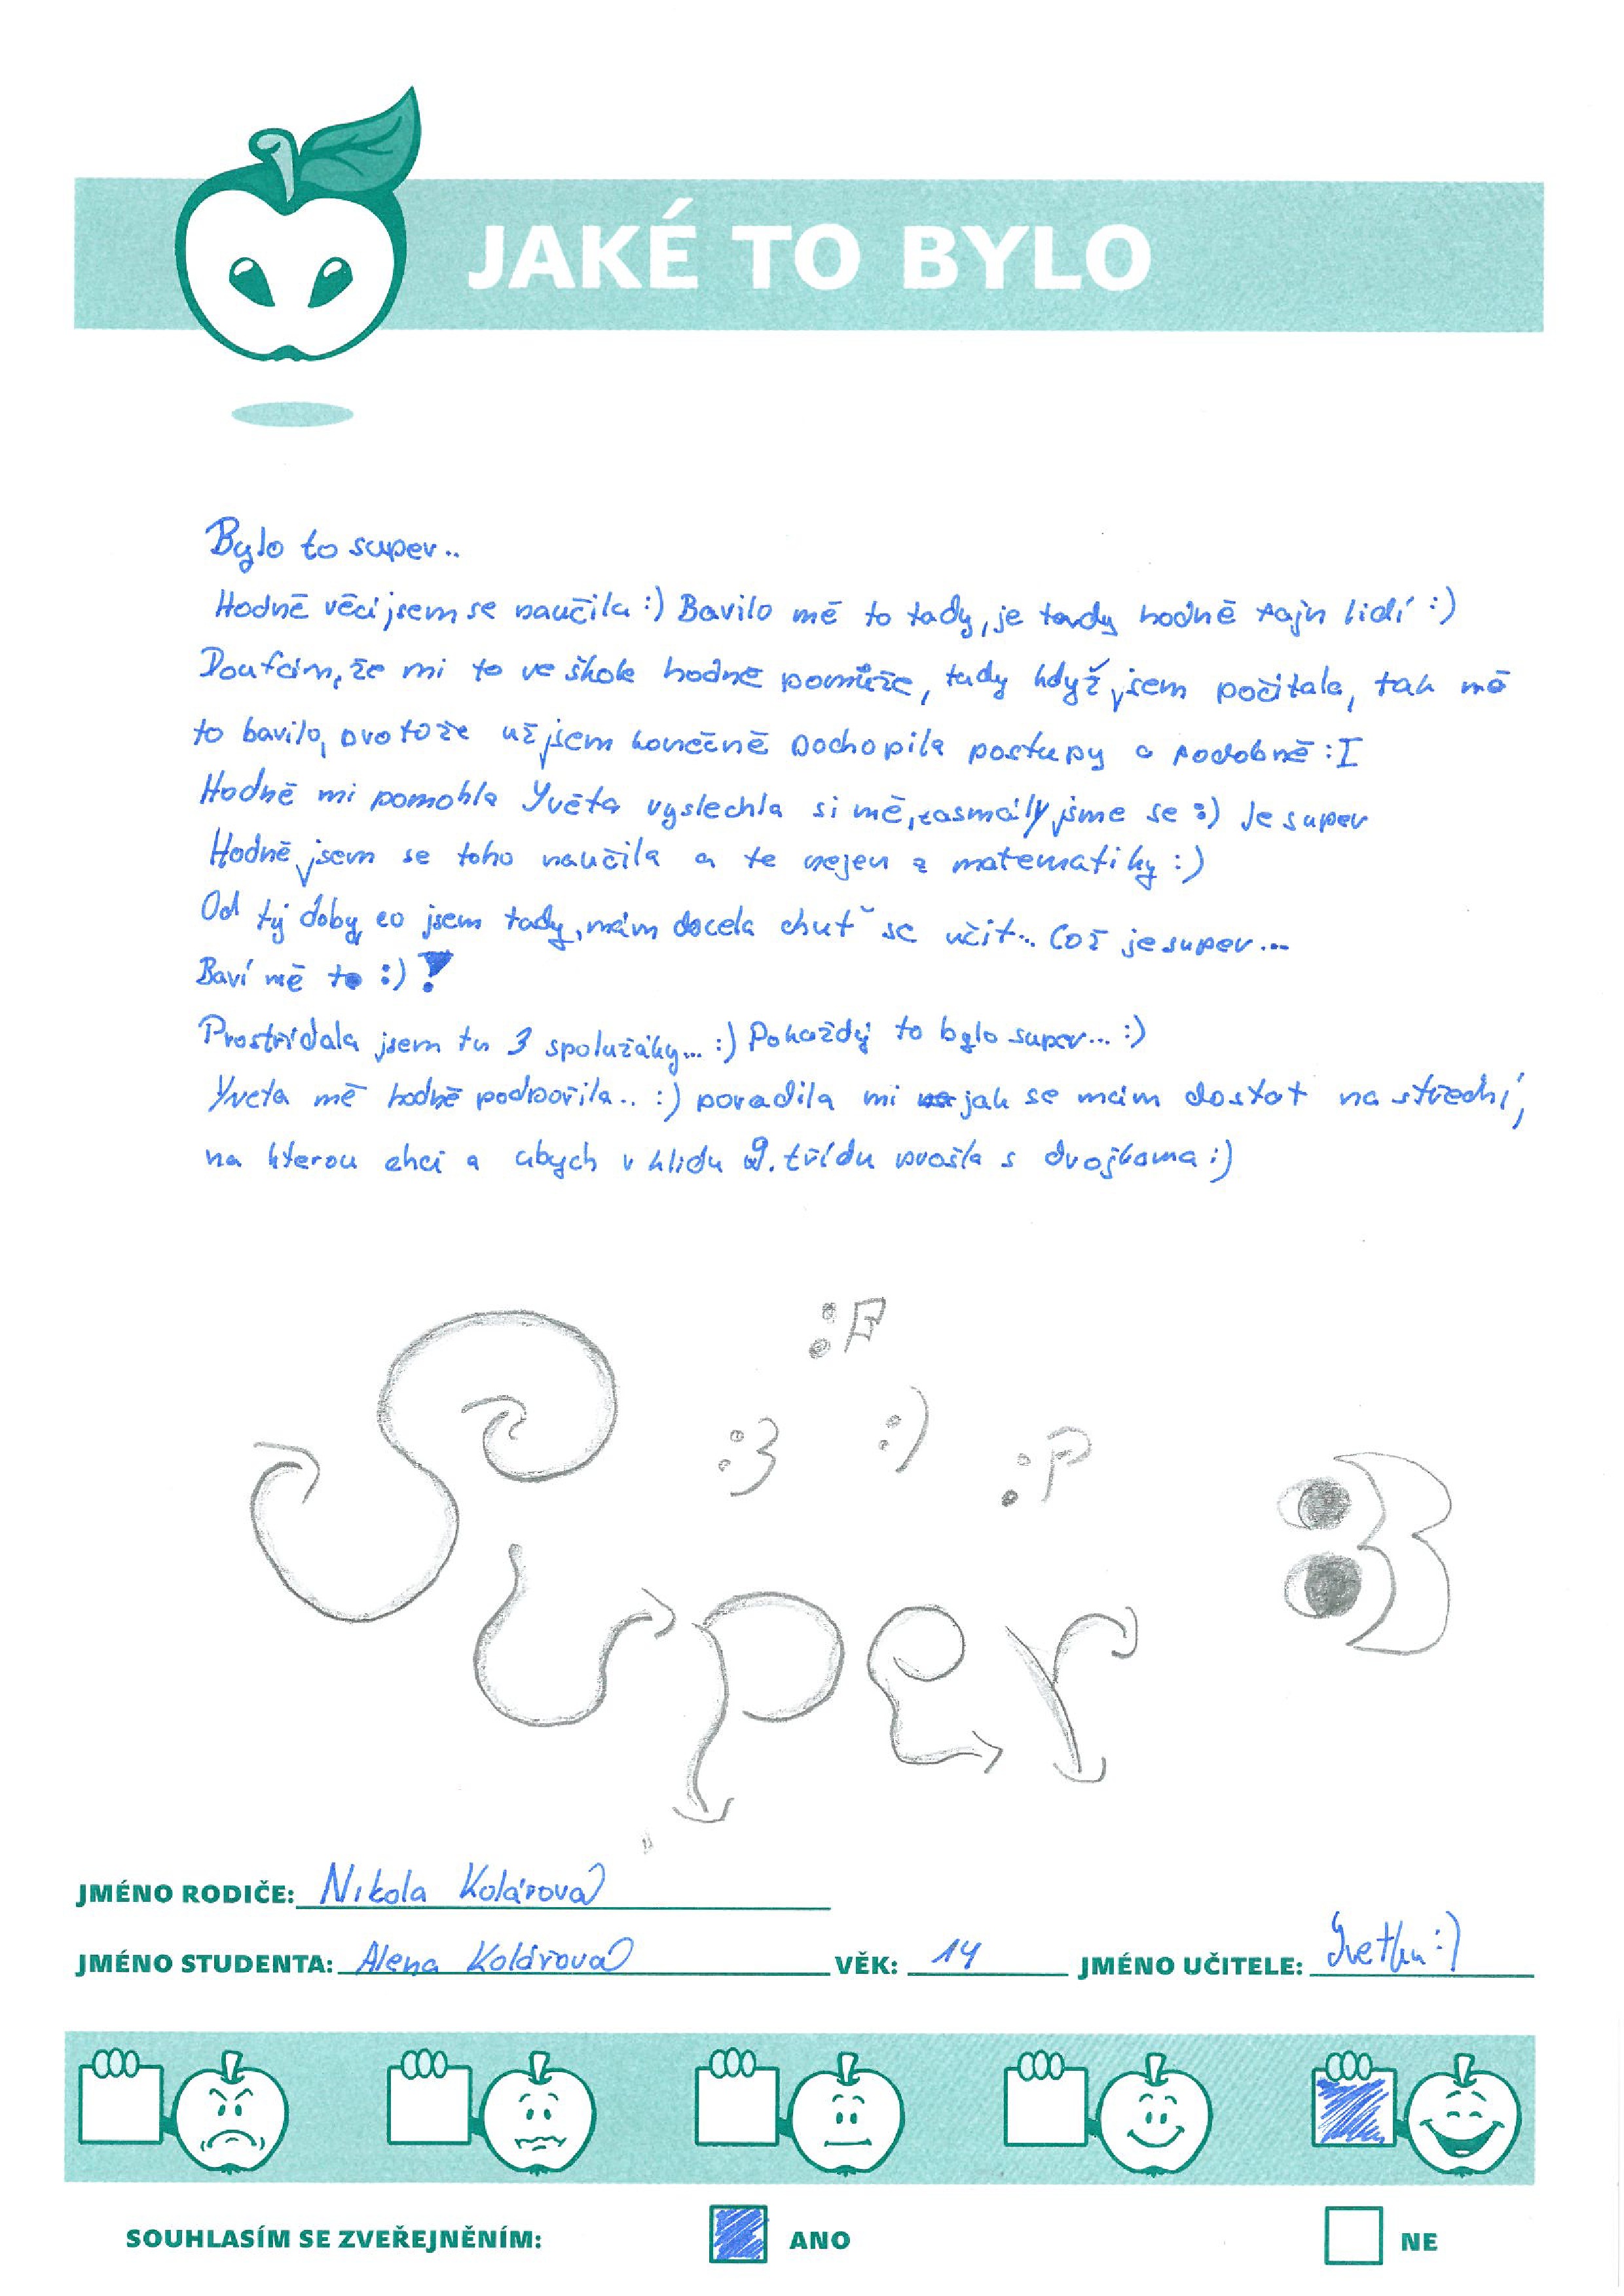 JAKÉ TO BYLO
Bylo to super..
Hodně věcí jsem se naučila :) Bavilo mě to tady, je tady hodně fajn lidí :)
Doufám, že mi to ve škole hodně pomůže, tady když jsem počítala, tak mě
to bavilo, protože už jsem konečně pochopila postupy a podobně :I
Hodně mi pomohla Yvěta vyslechla si mě, zasmály jsme se :) Je super
Hodně jsem se toho naučila a te nejen z matematiky :)
Od tý doby, co jsem tady, mám docela chuť se učit... Což je super...
Baví mě to :) !
Prostřídala jsem tu 3 spolužáky... :) Pokaždý to bylo super... :)
Yveta mě hodně podpořila.. :) poradila mi jak se mám dostat na střední,
na kterou chci a abych v klidu 9. třídu prošla s dvojkama :)
:F
:3 :) :P
Super :3
JMÉNO RODIČE: Nikola Kolárova
JMÉNO STUDENTA: Alena Kolárova VĚK: 14 JMÉNO UČITELE: Yvetka :)
SOUHLASÍM SE ZVEŘEJNĚNÍM: ANO NE